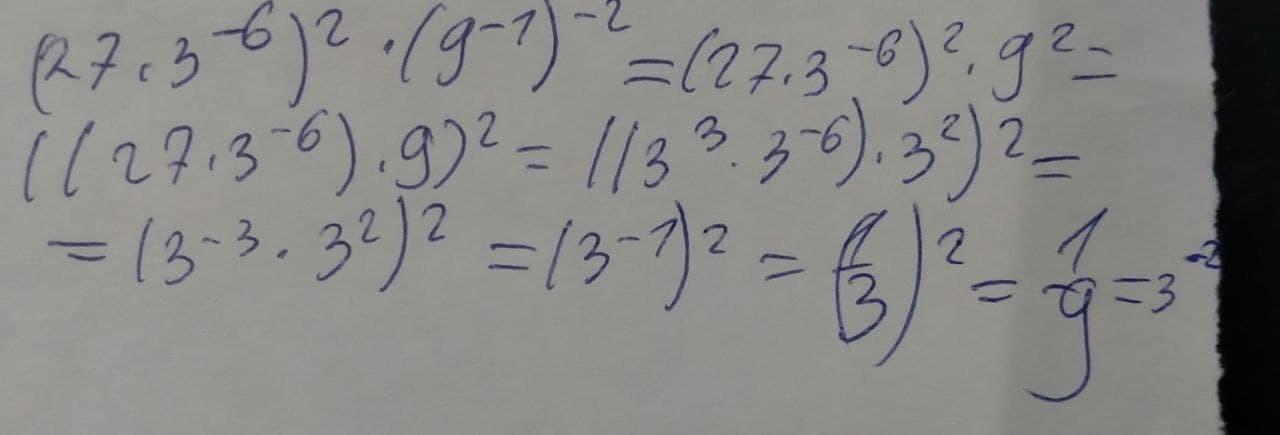 (27·3⁻⁶)²·(9⁻¹)⁻²=(27·3⁻⁶)²·9²=
((27·3⁻⁶)·9)²=((3³·3⁻⁶)·3²)²=
=(3⁻³·3²)²=(3⁻¹)²=(1/3)²=1/9=3⁻²